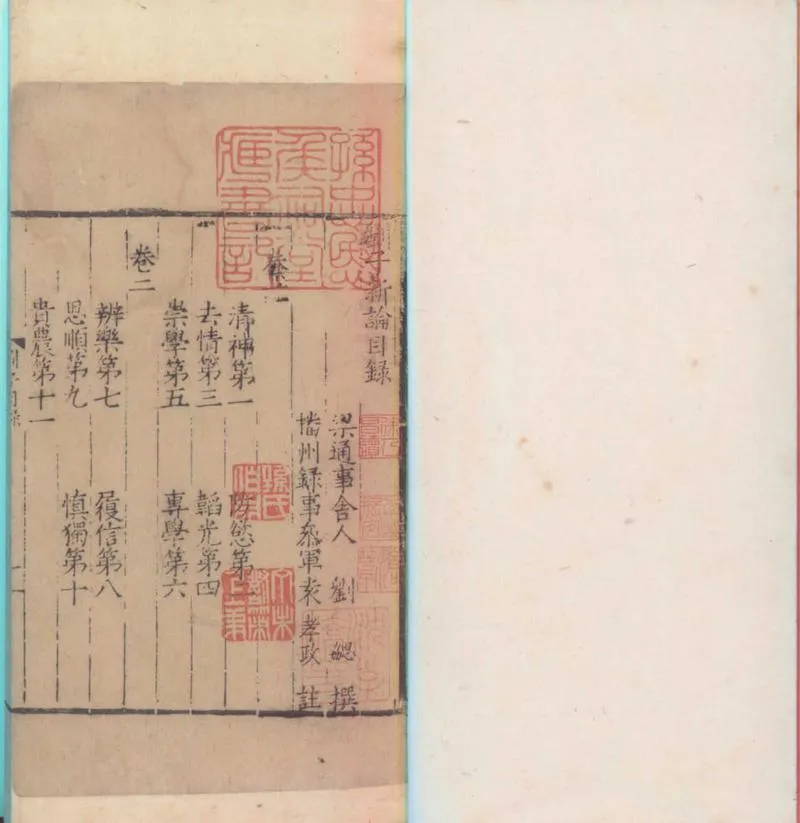 劉子新論目錄
梁通事舍人 劉 勰 撰
播州録事叅軍袁孝政 註
卷一
清神第一 防慾第二
去情第三 韜光第四
崇學第五 專學第六
卷二
辨樂第七 履信第八
思順第九 慎獨第十
貴農第十一
孫忠愍
侯祠堂
藏書記